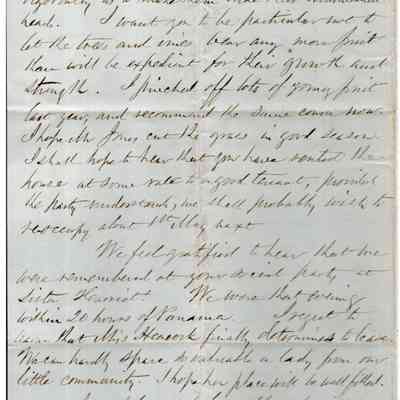 head. I want you to be particular not to
let the trees and vines bear any more fruit
than will be expedient for their growth and
strength. I pinched off lots of young fruit
last year, and recommend the same course now.
I hope Mr Jones cut the grass in good season
I shall hope to hear that you have rented the
house at some rate to a good tenant, provided
the party understands, we shall probably wish to
reoccupy about 1st May next
We feel gratified to hear that we
were remembered at your social party at
Sister Harriet's. We were that evening
within 20 hours of Panama. I regret to
learn that Miss Heacock finally determines to leave
We can hardly spare so valuable a lady from our
little community. I hope her place will be well filled.